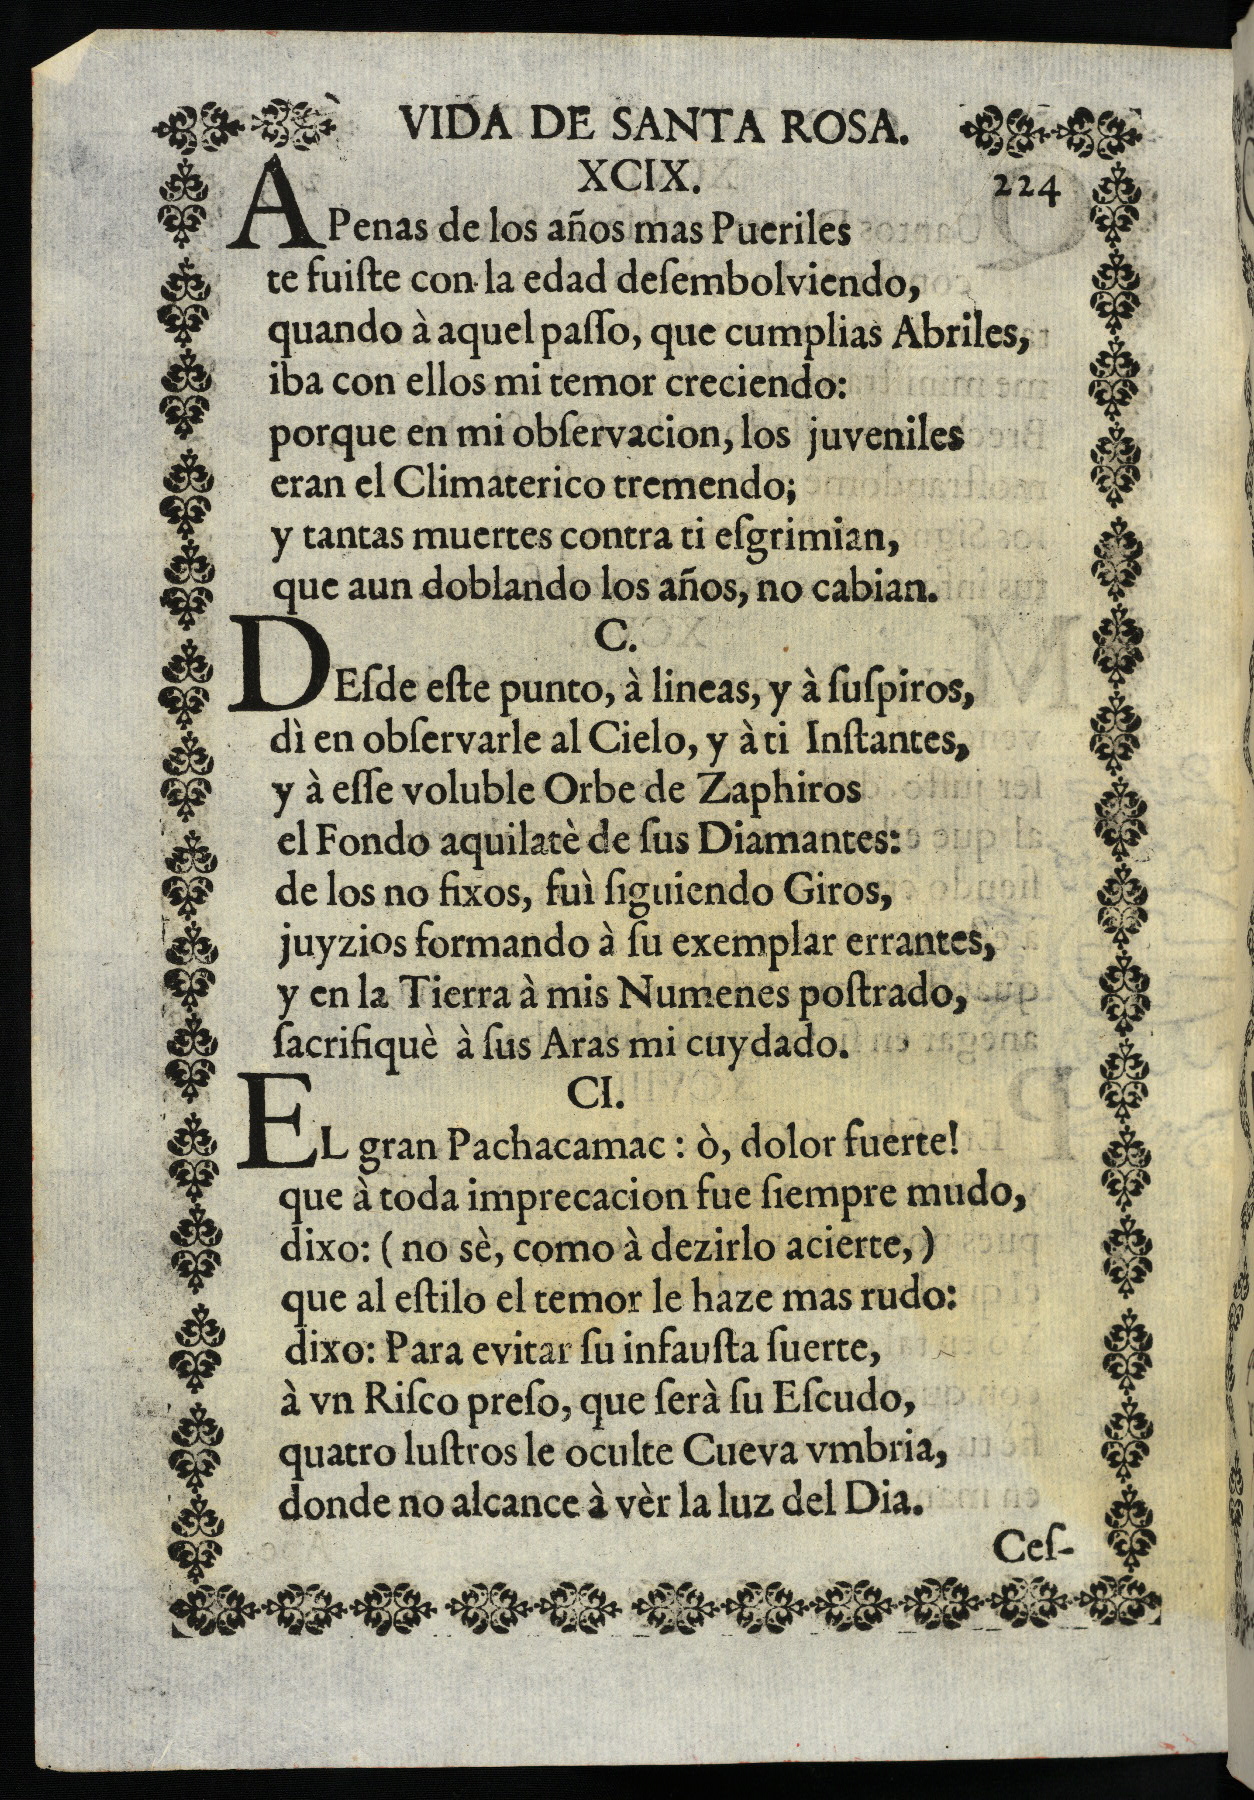 VIDA DE SANTA ROSA.
XCIX.
224
APenas de los años mas Pueriles
te fuiſte con la edad deſembolviendo,
quando à aquel paſſo, que cumplias Abriles,
iba con ellos mi temor creciendo:
porque en mi obſervacion, los juveniles
eran el Climaterico tremendo;
y tantas muertes contra ti eſgrimian,
que aun doblando los años, no cabian.
C.
DEſde eſte punto, à lineas, y à ſuſpiros,
dì en obſervarle al Cielo, y à ti Inſtantes,
y à eſſe voluble Orbe de Zaphiros
el Fondo aquilatè de ſus Diamantes:
de los no fixos, fuì ſiguiendo Giros,
juyzios formando à ſu exemplar errantes,
y en la Tierra à mis Numenes poſtrado,
ſacrifiquè à ſus Aras mi cuydado.
CI.
EL gran Pachacamac : ò, dolor fuerte!
que à toda imprecacion fue ſiempre mudo,
dixo: ( no sè, como à dezirlo acierte, )
que al eſtilo el temor le haze mas rudo:
dixo: Para evitar ſu infauſta ſuerte,
à vn Riſco preſo, que ſerà ſu Eſcudo,
quatro luſtros le oculte Cueva vmbria,
donde no alcance à vèr la luz del Dia.
Ceſ-